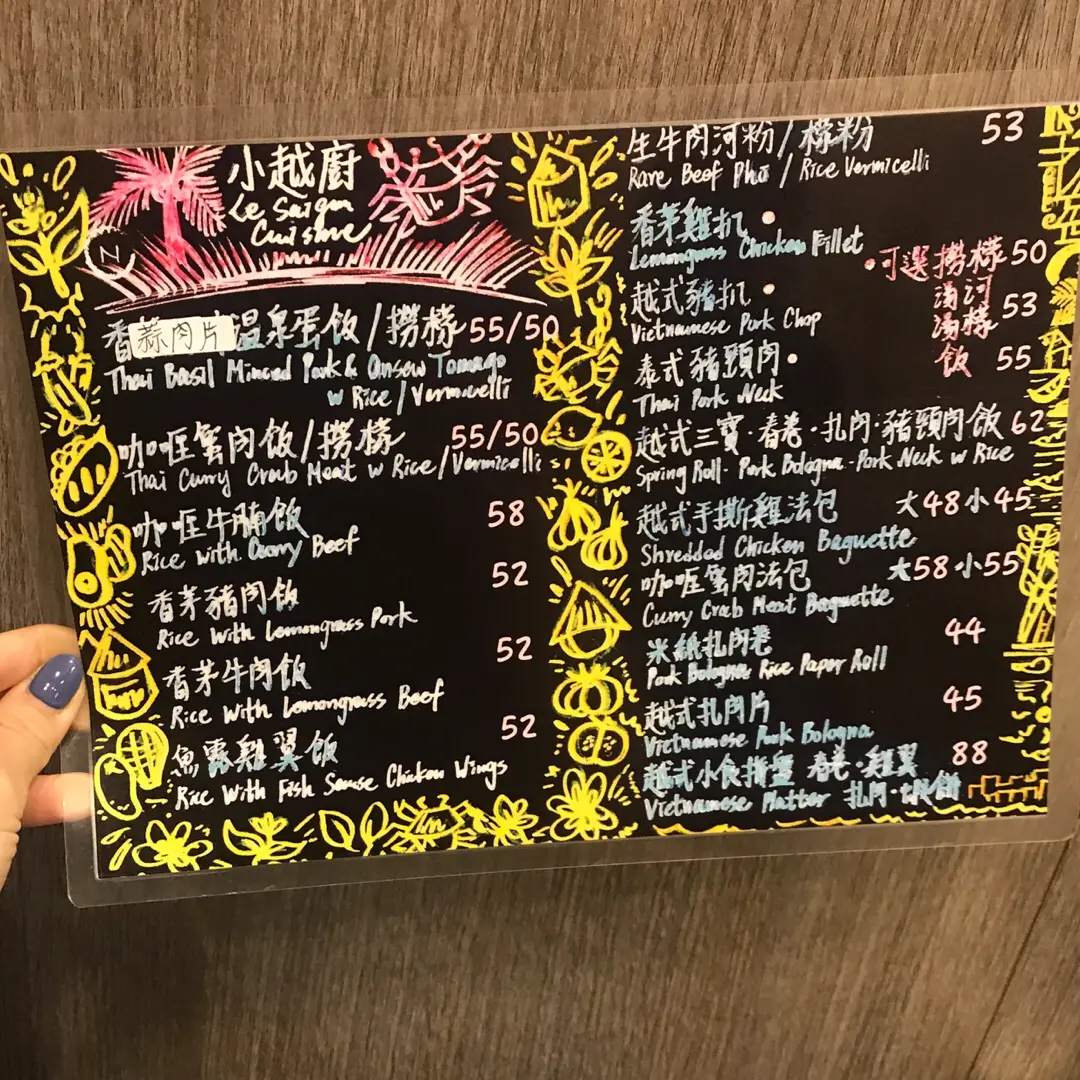 小越廚
Le Saigon
Cuisine
香蒜肉片温泉蛋飯/撈檬 55/50
Thai Basil Minced Pork & Onsen Tamago
w Rice/Vermicelli
咖喱蟹肉飯/撈檬 55/50
Thai Curry Crab Meat w Rice/Vermicelli
咖喱牛腩飯 58
Rice with Curry Beef
香茅豬肉飯 52
Rice with Lemongrass Pork
香茅牛肉飯 52
Rice with Lemongrass Beef
魚露雞翼飯 52
Rice with Fish Sauce Chicken Wings
生牛肉河粉/檬粉 53
Rare Beef Phở/Rice Vermicelli
香茅雞扒•
Lemongrass Chicken Fillet
越式豬扒•
Vietnamese Pork Chop
泰式豬頸肉•
Thai Pork Neck
•可選撈檬 50
湯河
湯檬 53
飯 55
越式三寶·春卷·扎肉·豬頸肉飯 62
Spring Roll·Pork Bologna·Pork Neck w Rice
越式手撕雞法包 大48小45
Shredded Chicken Baguette
咖喱蟹肉法包 大58小55
Curry Crab Meat Baguette
米紙扎肉卷 44
Pork Bologna Rice Paper Roll
越式扎肉片 45
Vietnamese Pork Bologna
越式小食拼盤 春卷·雞翼 88
Vietnamese Platter 扎肉·蝦餅